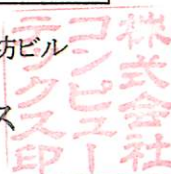 坊ビル
ス
株式会社
コンピュー
テックス印